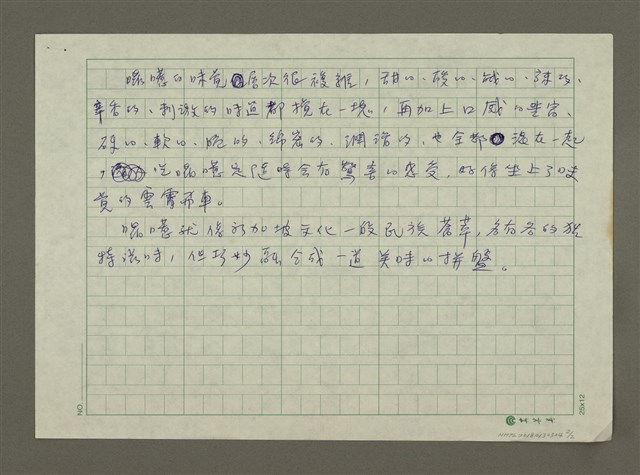 囉嘜的味覺層次很複雜,甜的、酸的、鹹的、辣的、
辛香的、刺激的味道都攪在一塊,再加上口感的豐富、
硬的、軟的、脆的、綿密的、潤滑的,也全都溶在一起
,吃囉嘜是隨時會有驚喜的感受,好像坐上了味
覺的雲霄飛車。
囉嘜就像新加坡文化一般民族薈萃,各有各的獨
特滋味,但巧妙融合成一道美味的拼盤。
NO.
25x12